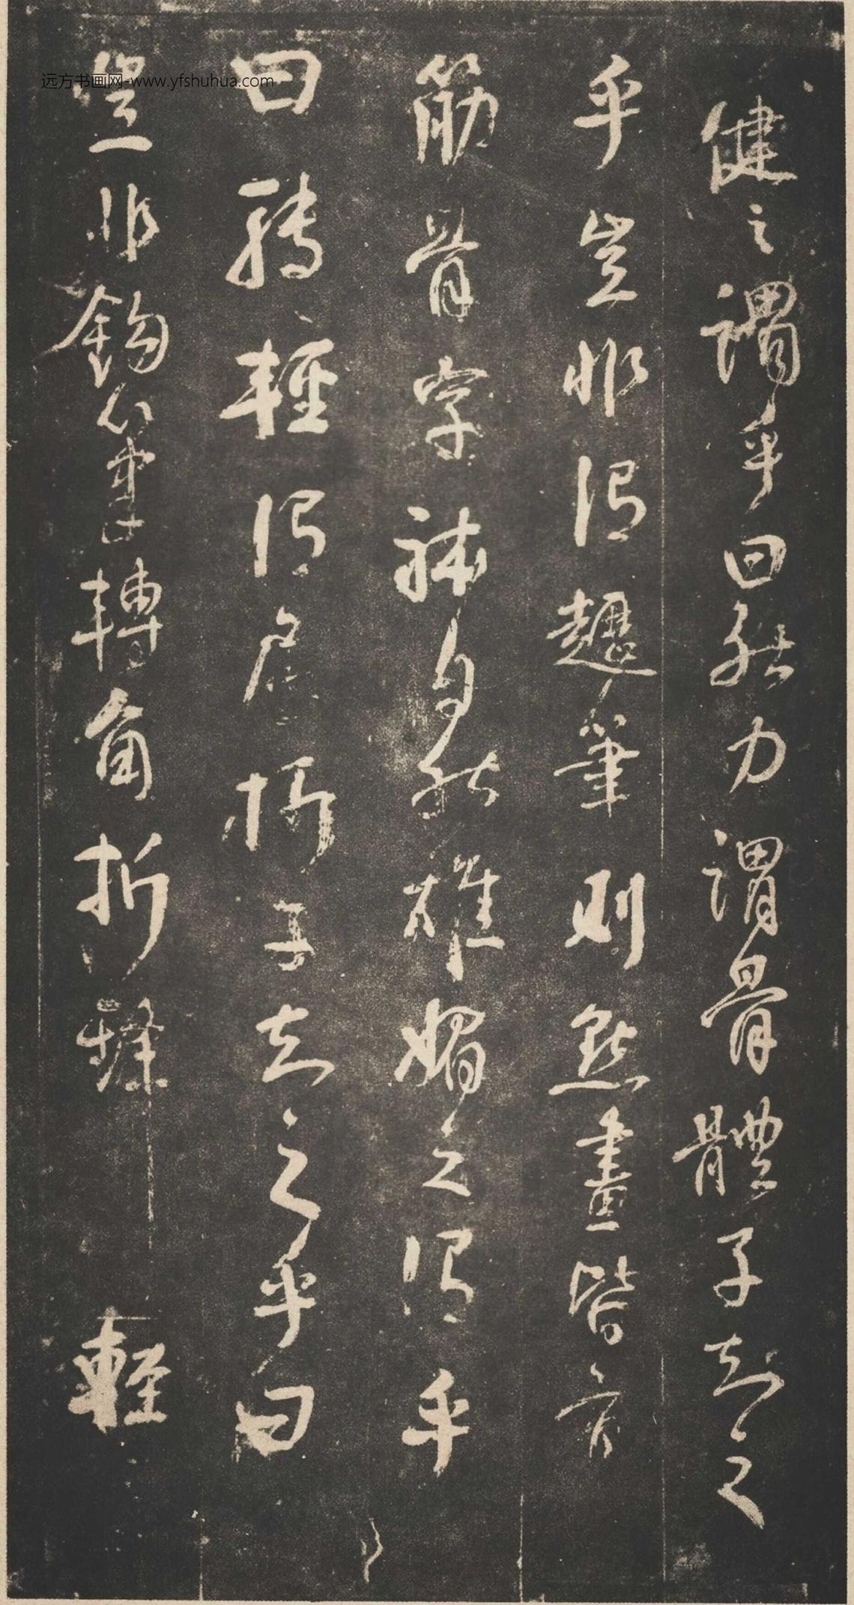 健之謂乎曰然力謂骨體子知之
乎豈非謂趯筆則點畫皆有
筋骨字體自然雄媚之謂乎
曰轉輕謂屈折子知之乎曰
豈非鈎筆轉角折鋒輕
远方书画网-www.yfshuhua.com